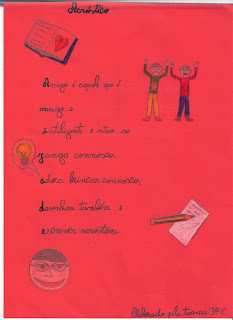 Acróstico
Amigo é aquele que é
meigo e
inteligente e não se
zanga connosco.
adora brincar connosco,
desenhar também e
escrever acrósticos.
Elaborado pela turma 3º C